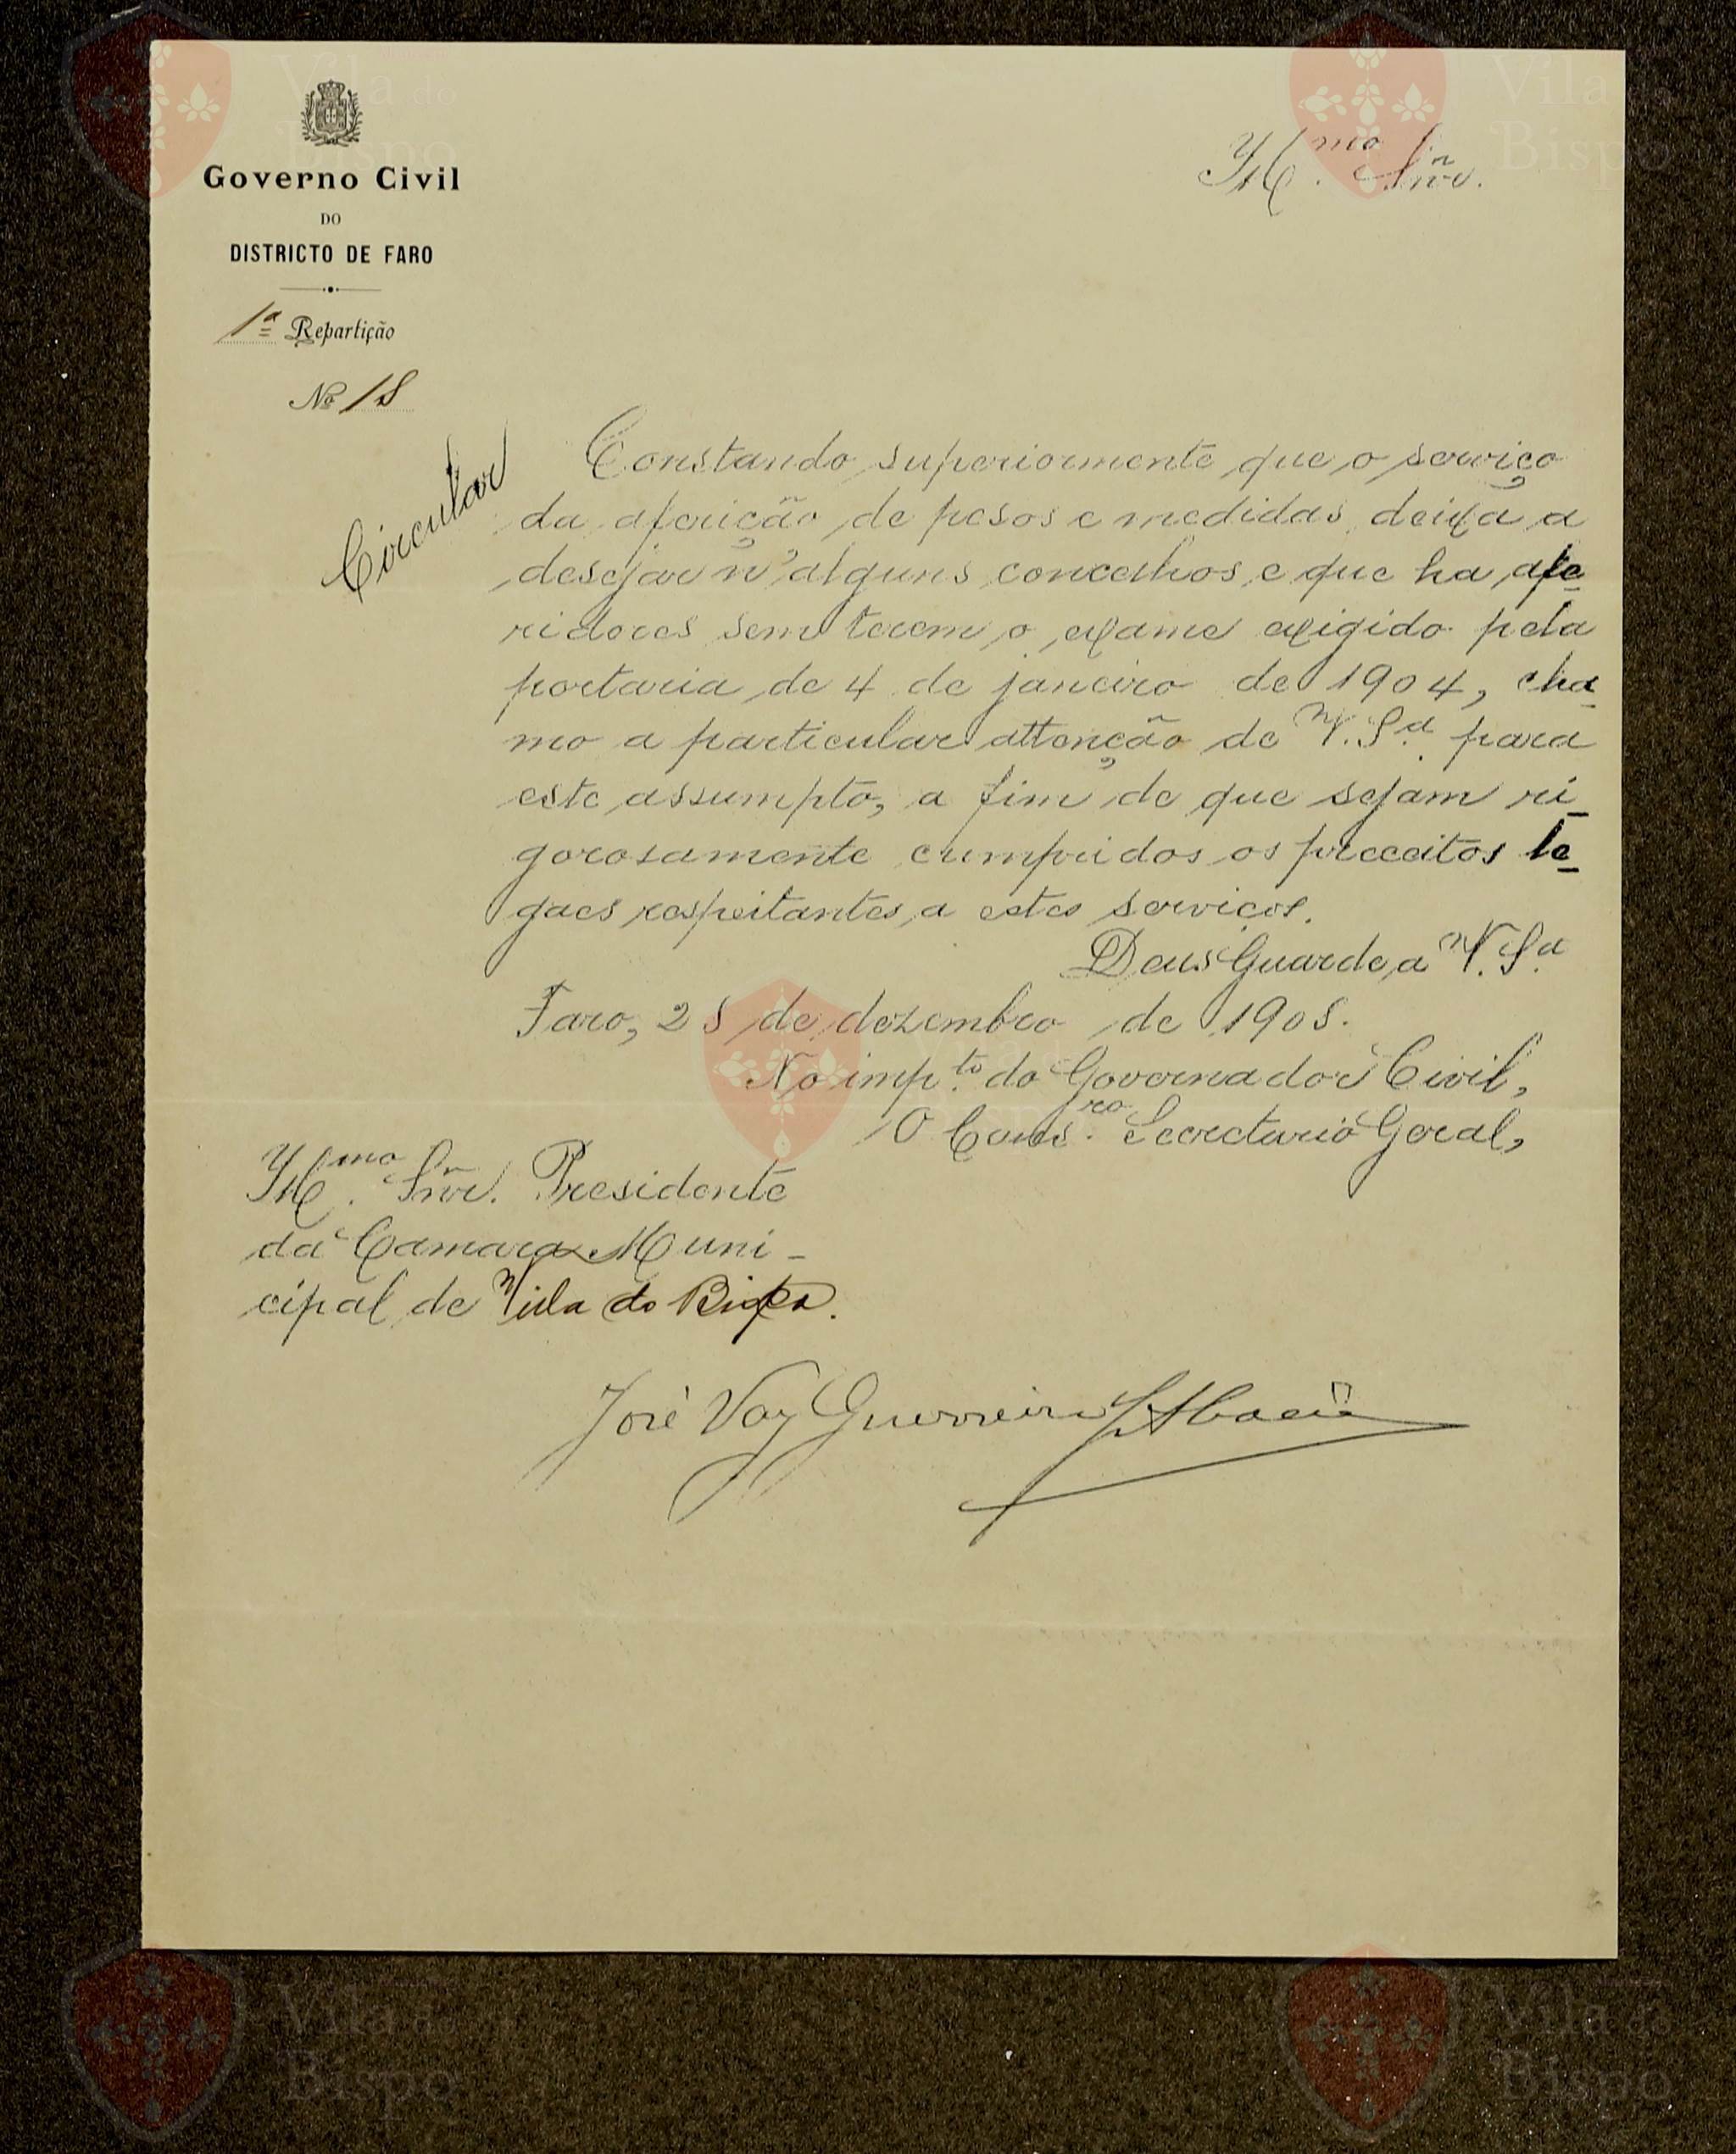 Governo Civil
DO
DISTRICTO DE FARO
1ª Repartição
Nº 18
Circular
Illmo Snr.
Constando superiormente que o serviço
da aferição de pesos e medidas deixa a
desejar n'alguns concelhos e que ha afe-
ridores sem terem o exame exigido pela
portaria de 4 de janeiro de 1904, cha-
mo a particular attenção de V. Sª para
este assumpto, a fim de que sejam ri-
gorosamente cumpridos os preceitos le-
gaes respeitantes a estes serviços.
Deus Guarde a V. Sª
Faro, 28 de dezembro de 1908.
No impto do Governador Civil,
O Consro Secretario Geral,
Illmo Snr. Presidente
da Camara Muni-
cipal de Villa do Bispo.
José Vaz Guerreiro
Vila do
Bispo
Vila do
Bispo
Vila do
Bispo
Vila do
Bispo
Vila do
Bispo